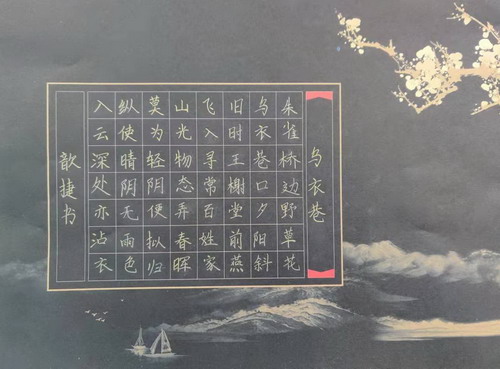 乌衣巷
朱雀桥边野草花
乌衣巷口夕阳斜
旧时王榭堂前燕
飞入寻常百姓家
山光物态弄春晖
莫为轻阴便拟归
縱使晴阴无雨色
入云深处亦沾衣
歆捷书